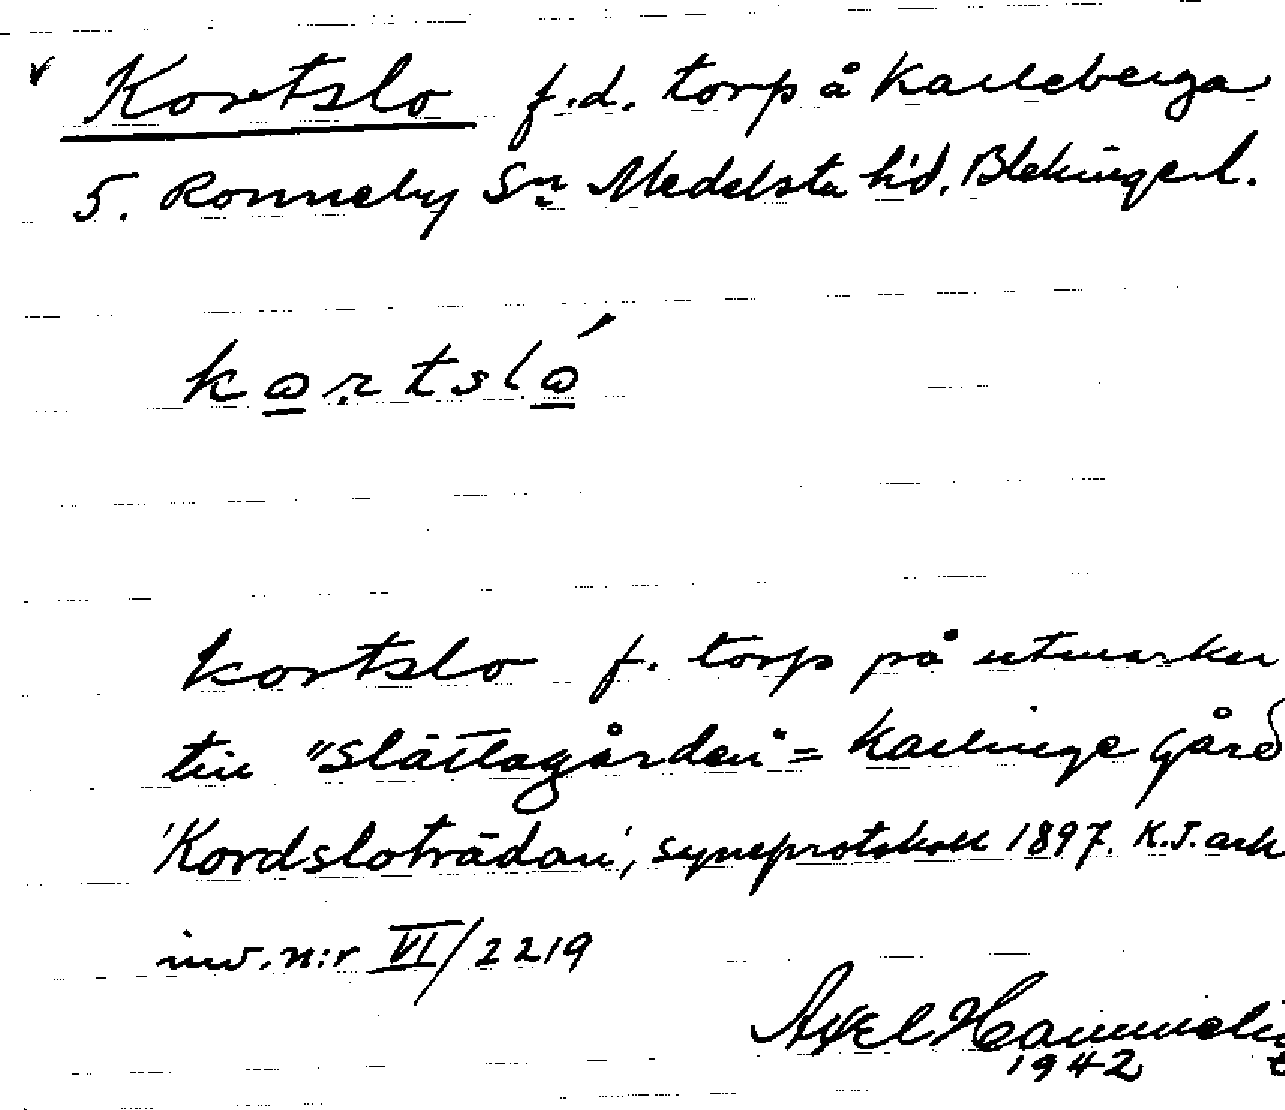 v Kortslo f.d. torp å Karleberga
5. Ronneby Sn Medelsta h'd. Blekinge l.
kortsló
Kortslo f. torp på utmarken
till "Slättagården" = Kallinge Gård
'Kordsloträdan', syneprotokoll 1897. K.J. ark
inv. n:r VI/2219
Axel Hammelin
1942